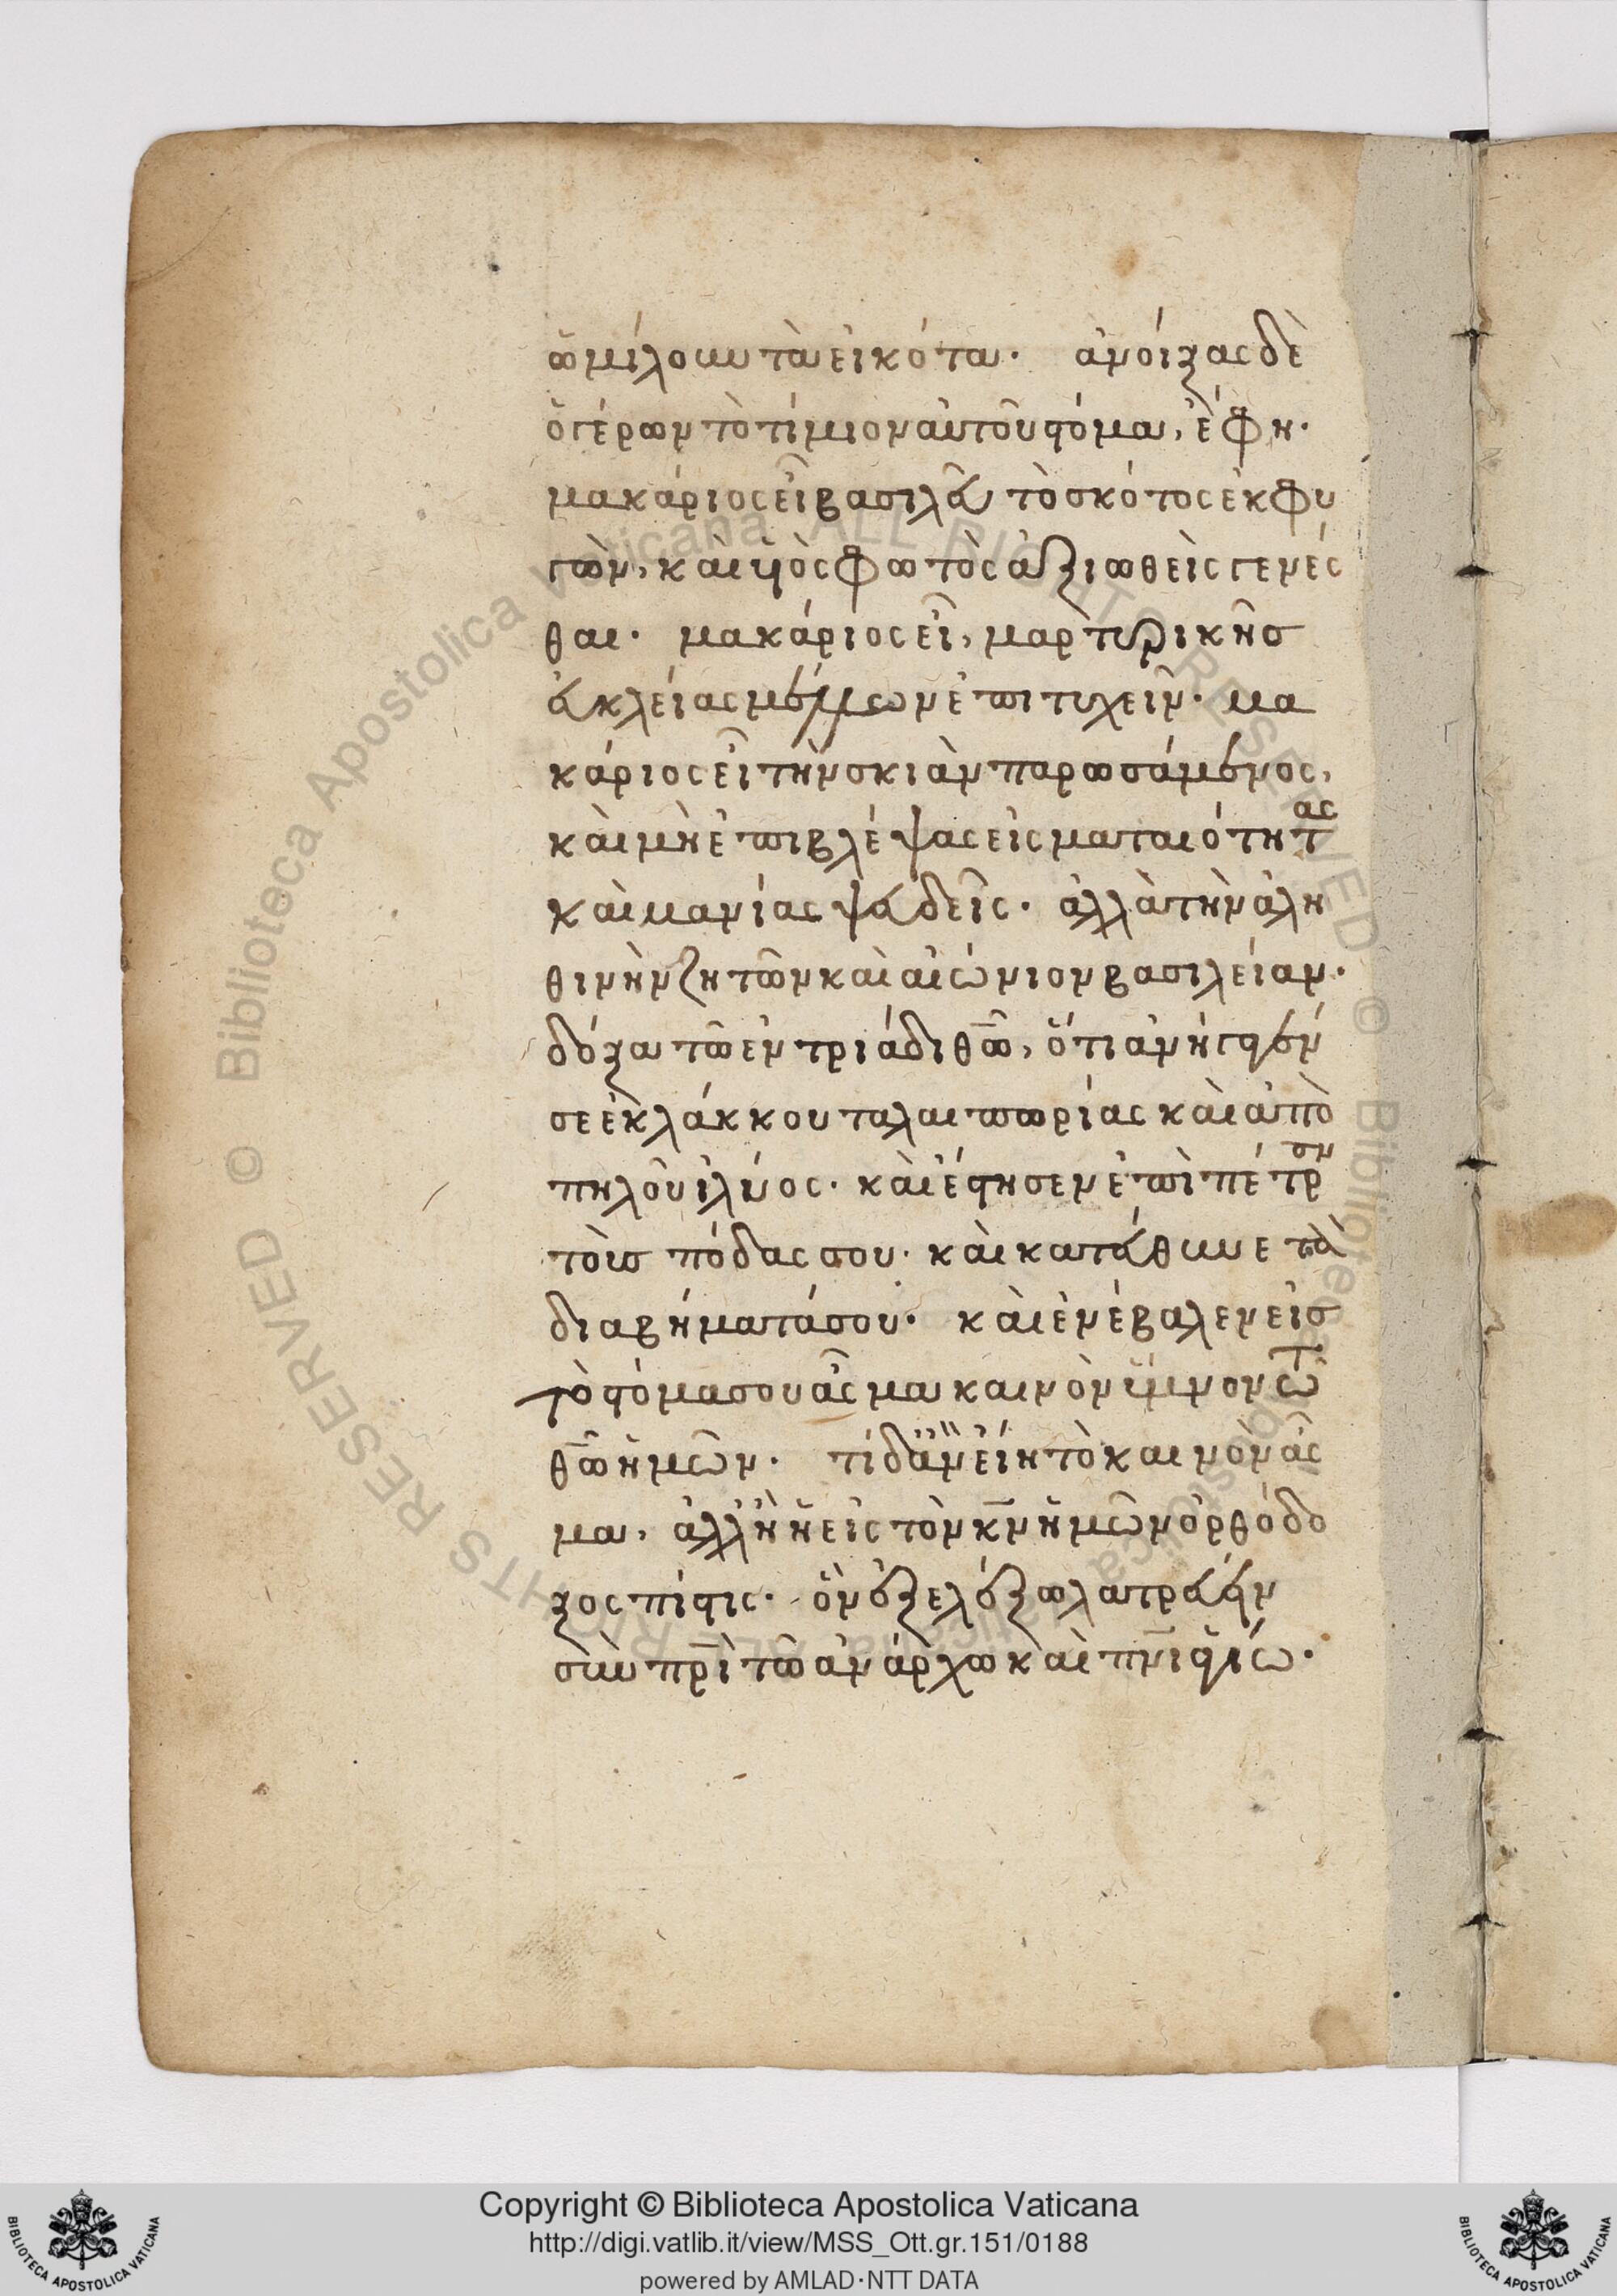 ὡμίλουν τὰ εἰκότα. ἀνοίξας δὲ
ὁ γέρων τὸ τίμιον αὐτοῦ στόμα, ἔφη.
μακάριος εἶ βασιλεῦ τὸ σκότος ἐκφυ
γὼν, καὶ υἱὸς φωτὸς ἀξιωθεὶς γενέσ
θαι. μακάριος εἶ, μαρτυρικῆς
εὐκλείας μέλλων ἐπιτυχεῖν. μα
κάριος εἶ τὴν σκιὰν παρωσάμενος,
καὶ μὴ ἐπιβλέψας εἰς ματαιότητας
καὶ μανίας ψευδεῖς. ἀλλὰ τὴν ἀλη
θινὴν ζητῶν καὶ αἰώνιον βασιλείαν.
δόξα τῶ ἐν τριάδι θῶ, ὅτι ἀνήγαγέν
σε ἐκ λάκκου ταλαιπωρίας καὶ ἀπὸ
πηλοῦ ἰλύος. καὶ ἔστησεν ἐπὶ πέτραν
τοὺς πόδας σου. καὶ κατεύθυνε τὰ
διαβήματά σου. καὶ ἐνέβαλεν εἰς
τὸ στόμα σου ᾆσμα καινὸν ὕμνον τῶ
θῶ ἡμῶν. τί δ' ἂν εἴη τὸ καινὸν ᾆσ
μα, ἀλλ' ἢ ἡ εἰς τὸν κν ἡμῶν ὀρθόδο
ξος πίστις. ὃν ἐξελέξω λατρεύειν
σὺν πρὶ τῶ ἀνάρχω καὶ πνι ἁγίω.
Copyright © Biblioteca Apostolica Vaticana
http://digi.vatlib.it/view/MSS_Ott.gr.151/0188
powered by AMLAD·NTT DATA
BIBLIOTECA APOSTOLICA VATICANA
BIBLIOTECA APOSTOLICA VATICANA
© Biblioteca Apostolica Vaticana ALL RIGHTS RESERVED © Biblioteca Apostolica Vaticana ALL RIGHTS RESERVED